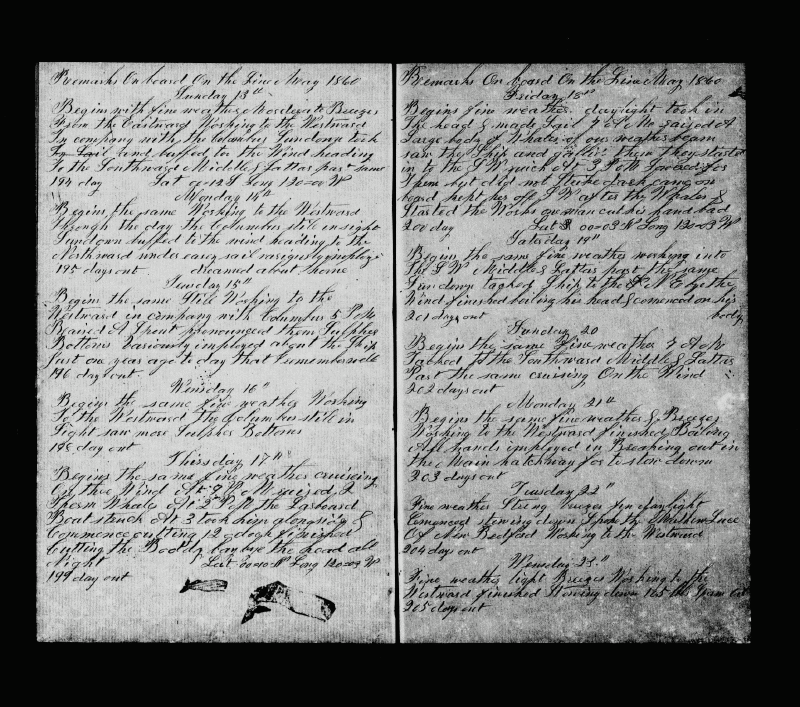 Remarks On board On the Line May 1860
Sunday 13th
Begins with fine weather Moderate Breezes
From the Eastward Working to the Westward
In company with the Columbus Sundown took
In Sail and luffed to the Wind heading
To the Southward Middle & Latter part same
194 day Lat 00=12 S Long 120=00 W
Monday 14th
Begins the same Working to the Westward
Through the day the Columbus still in sight
Sundown luffed to the wind heading to the
Northward under easy sail variously employed
195 days out dreamed about home
Tuesday 15th
Begins the same Still Working to the
Westward in company with Columbus 5 P M
Raised A Spout pronounced them Sulpher
Bottoms Variously imployed about the Ship
Just one year ago to day that I remember well
196 day out
Wensday 16th
Begins the same fine weather Working
To the Westward the Columbus still in
Sight saw more Sulpher Bottoms
198 day out
Thirsday 17th
Begins the same fine weather cruising
On the Wind At P M raised 2
Sperm Whales At 2 P M the Larboard
Boat struck At 3 took him alongside &
Commence cutting 12 oclock finished
Cutting the Boddy lan bye the head all
Night Lat 00=10 N Long 120=09 W
199 day out
Remarks On board On the Line May 1860
Friday 18th
Begins fine weather daylight took in
The head & made Sail 7 A M raised A
Large body of Whales of our weather beam
saw the Ship and they started
in to the S W quick at 3 P M Lowered for
Them but did not Strike Dark came on
board kept her off S W after the Whales &
Started the Works one man cut his hand bad
200 day Lat 00=03 N Long 120=03 W
Saturday 19th
Begins the same fine weather working into
The S W Middle & Latter part the same
Sundown tacked Ship to the N E by the
Wind finished boiling his head & comenced on his
201 days out body
Sunday 20
Begins the same Fine weather 7 A M
Tacked to the Southward Middle & Latter
Part the same cruising On the Wind
202 days out
Monday 21st
Begins the same fine weather & Breezes
Working to the Westward finished Boiling
All hands imployed in Breaking out in
the Main hatchway for to stow down
203 days out
Tuesday 22"
Fine weather Strong breezes fin daylight
Comenced stowing down Spoke the Matthew Luce
Of New Bedford Working to the Westward
204 day out
Wensday 23"
Fine weather light Breezes Working to the
Westward finished Stowing down 165 bbls Sperm Oil
205 days out